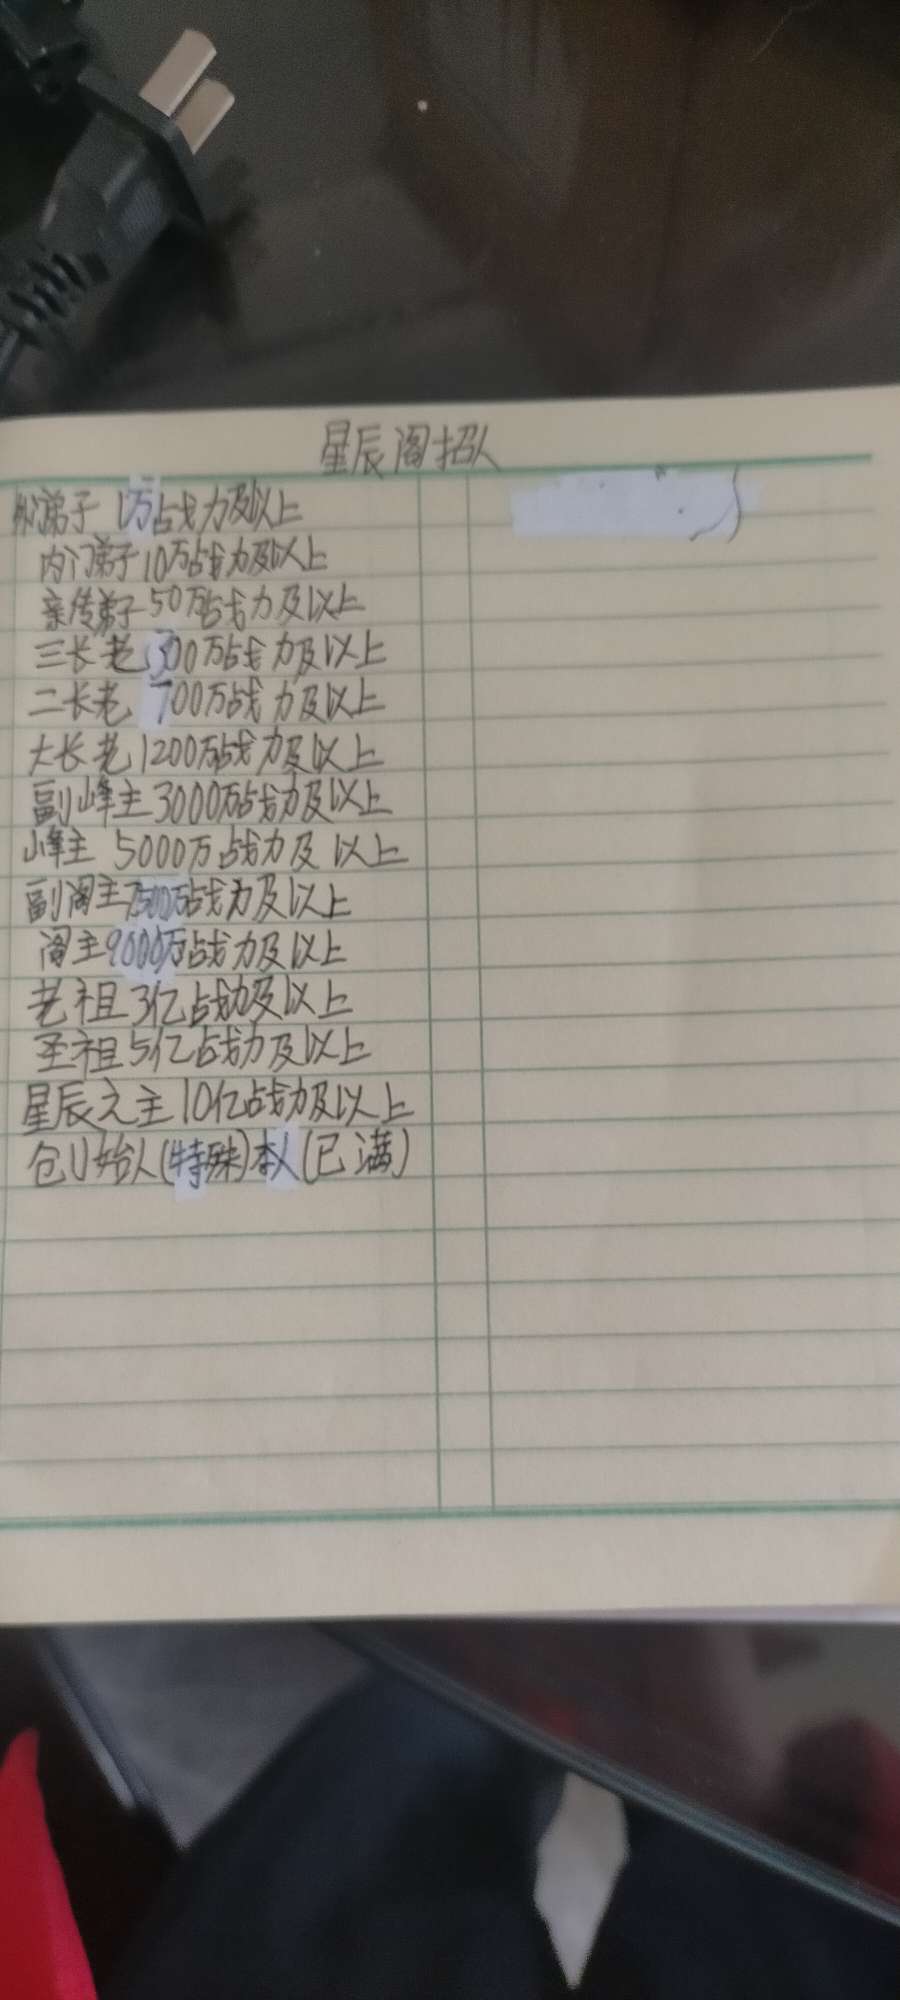 星辰阁招人
外门弟子 1万占战力及以上
内门弟子10万战力及以上
亲传弟子50万战力及以上
三长老300万战力及以上
二长老 700万战力及以上
大长老1200万战力及以上
副峰主3000万战力及以上
峰主 5000万战力及以上
副阁主7500万战力及以上
阁主9000万战力及以上
老祖3亿战力及以上
圣祖5亿战力及以上
星辰之主10亿战力及以上
创始人(特殊)本人(已满)